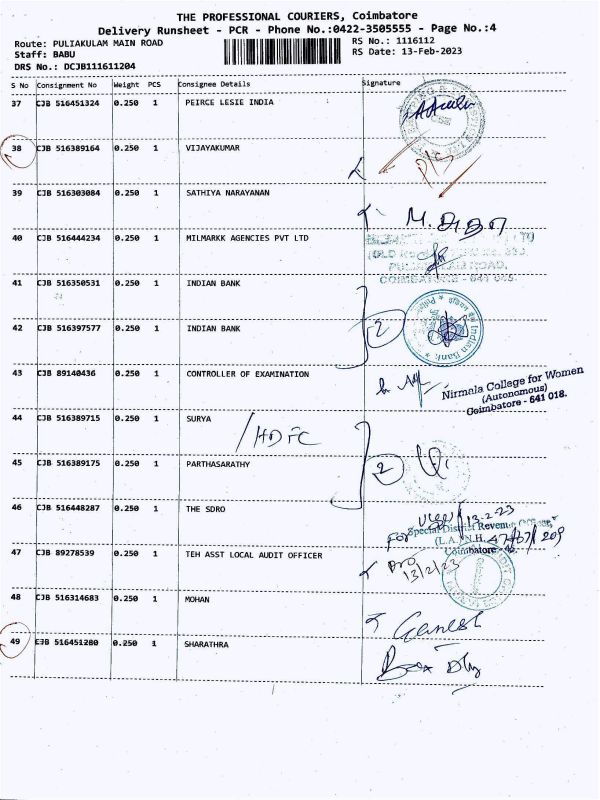 THE PROFESSIONAL COURIERS, Coimbatore
Delivery Runsheet - PCR - Phone No.:0422-3505555 - Page No.:4
Route: PULIAKULAM MAIN ROAD RS No.: 1116112
Staff: BABU RS Date: 13-Feb-2023
DRS No.: DCJB111611204
S No Consignment No Weight PCS Consignee Details Signature
37 CJB 516451324 0.250 1 PEIRCE LESIE INDIA
38 CJB 516389164 0.250 1 VIJAYAKUMAR
P/S
39 CJB 516303084 0.250 1 SATHIYA NARAYANAN
40 CJB 516444234 0.250 1 MILMARKK AGENCIES PVT LTD
COIMBATORE - 641 045.
41 CJB 516350531 0.250 1 INDIAN BANK
2
Indian Bank
42 CJB 516397577 0.250 1 INDIAN BANK
43 CJB 89140436 0.250 1 CONTROLLER OF EXAMINATION
Nirmala College for Women
(Autonomous)
Coimbatore - 641 018.
44 CJB 516389715 0.250 1 SURYA
HDFC
45 CJB 516389175 0.250 1 PARTHASARATHY
2
46 CJB 516448287 0.250 1 THE SDRO
13-2-23
For
Special District Revenue Officer,
(L.A.) N.H.
Coimbatore
47 CJB 89278539 0.250 1 TEH ASST LOCAL AUDIT OFFICER
13/2/23
48 CJB 516314683 0.250 1 MOHAN
Ganesh
49 CJB 516451280 0.250 1 SHARATHRA